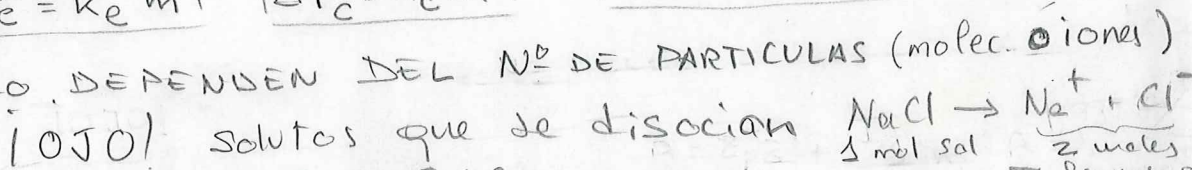 = Ke m
c
o. DEPENDEN DEL Nº DE PARTICULAS (molec. o iones)
¡OJO! solutos que se disocian NaCl → Na⁺ + Cl⁻
1 mol sal 2 moles